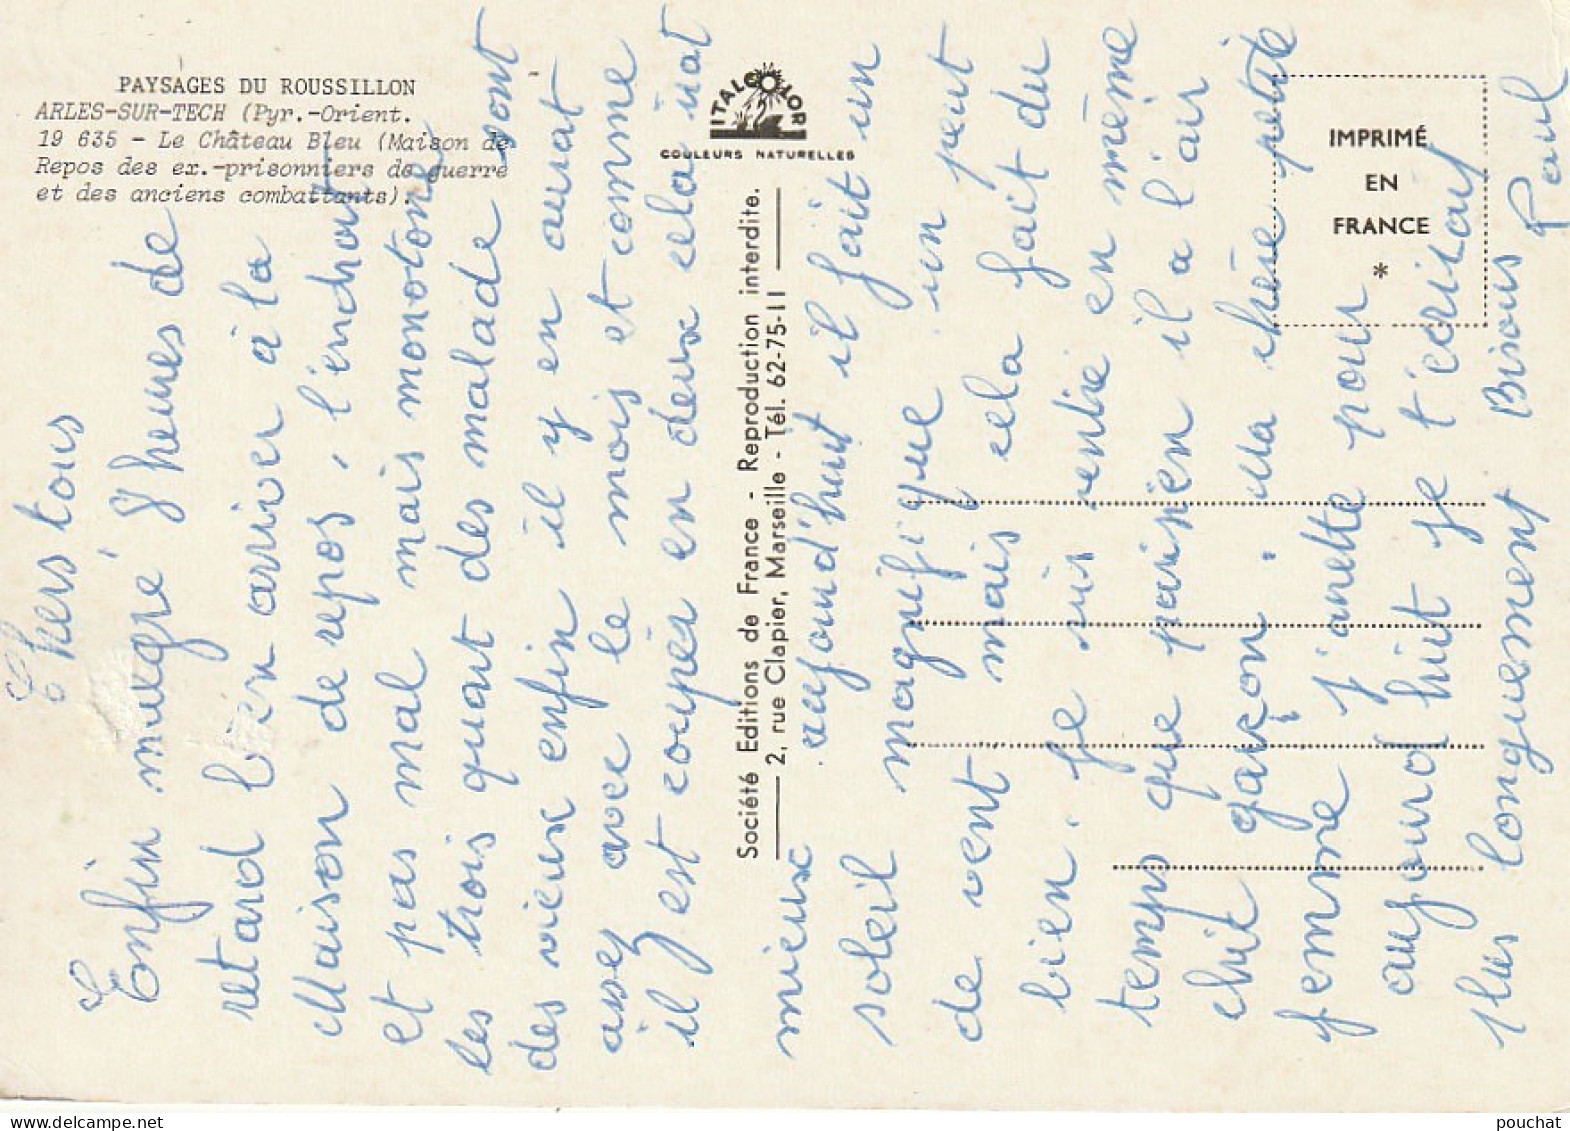 PAYSAGES DU ROUSSILLON
ARLES-SUR-TECH (Pyr.-Orient.
19 635 - Le Château Bleu (Maison de
Repos des ex.-prisonniers de guerre
et des anciens combattants).
ITALCOLOR
COULEURS NATURELLES
Société Editions de France - Reproduction interdite.
2, rue Clapier, Marseille - Tél. 62-75-11
IMPRIMÉ
EN
FRANCE
*
Chers tous
Enfin malgré 8 heures de
retard bien arriver à la
Maison de repos, l'endroit
et pas mal mais monotone
les trois quart des malade sont
des vieux enfin il y en aurat
assez avec le mois et comme
il est coupér en deux cela irat
mieux aujourd'huit il fait un
soleil magnifique un peut
de vent mais cela fait du
bien. je suis rentré en même
temps que parisien il a l'air
chic garçon. ma chère petite
femme j'arrette pour
aujourd'huit je t'écrirait
plus longuement Bisous Paul
pouchat